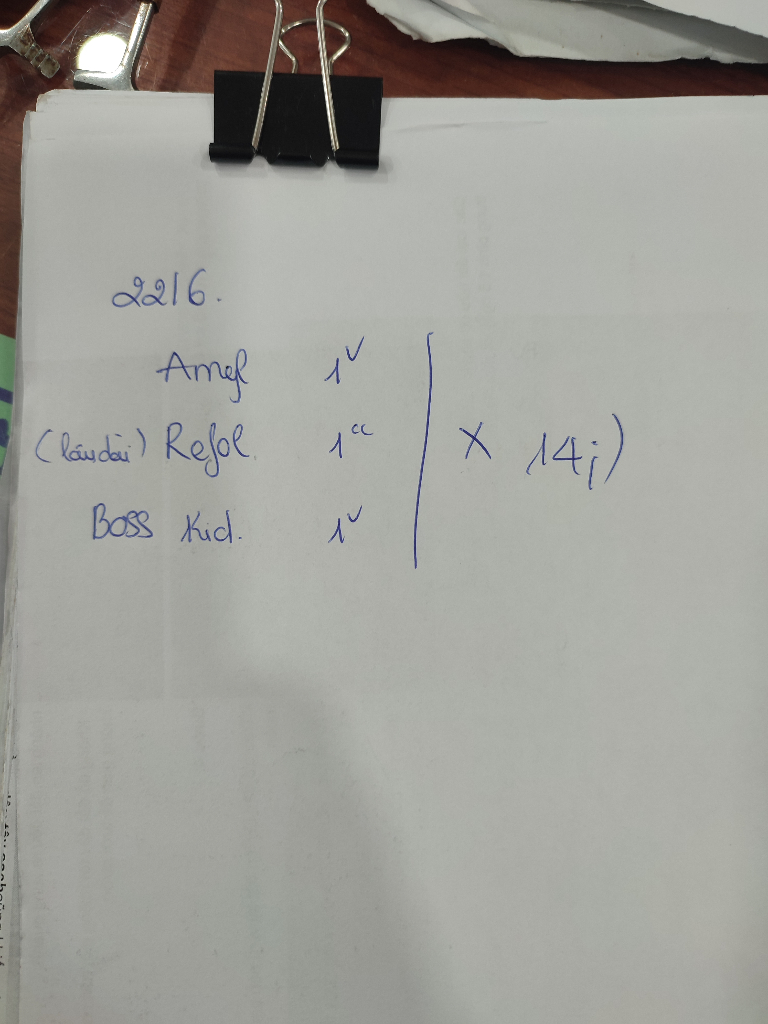 22/6.
Amef 1v
(lâu dài) Refol. 1cc
Boss Kid. 1v
x 14j)